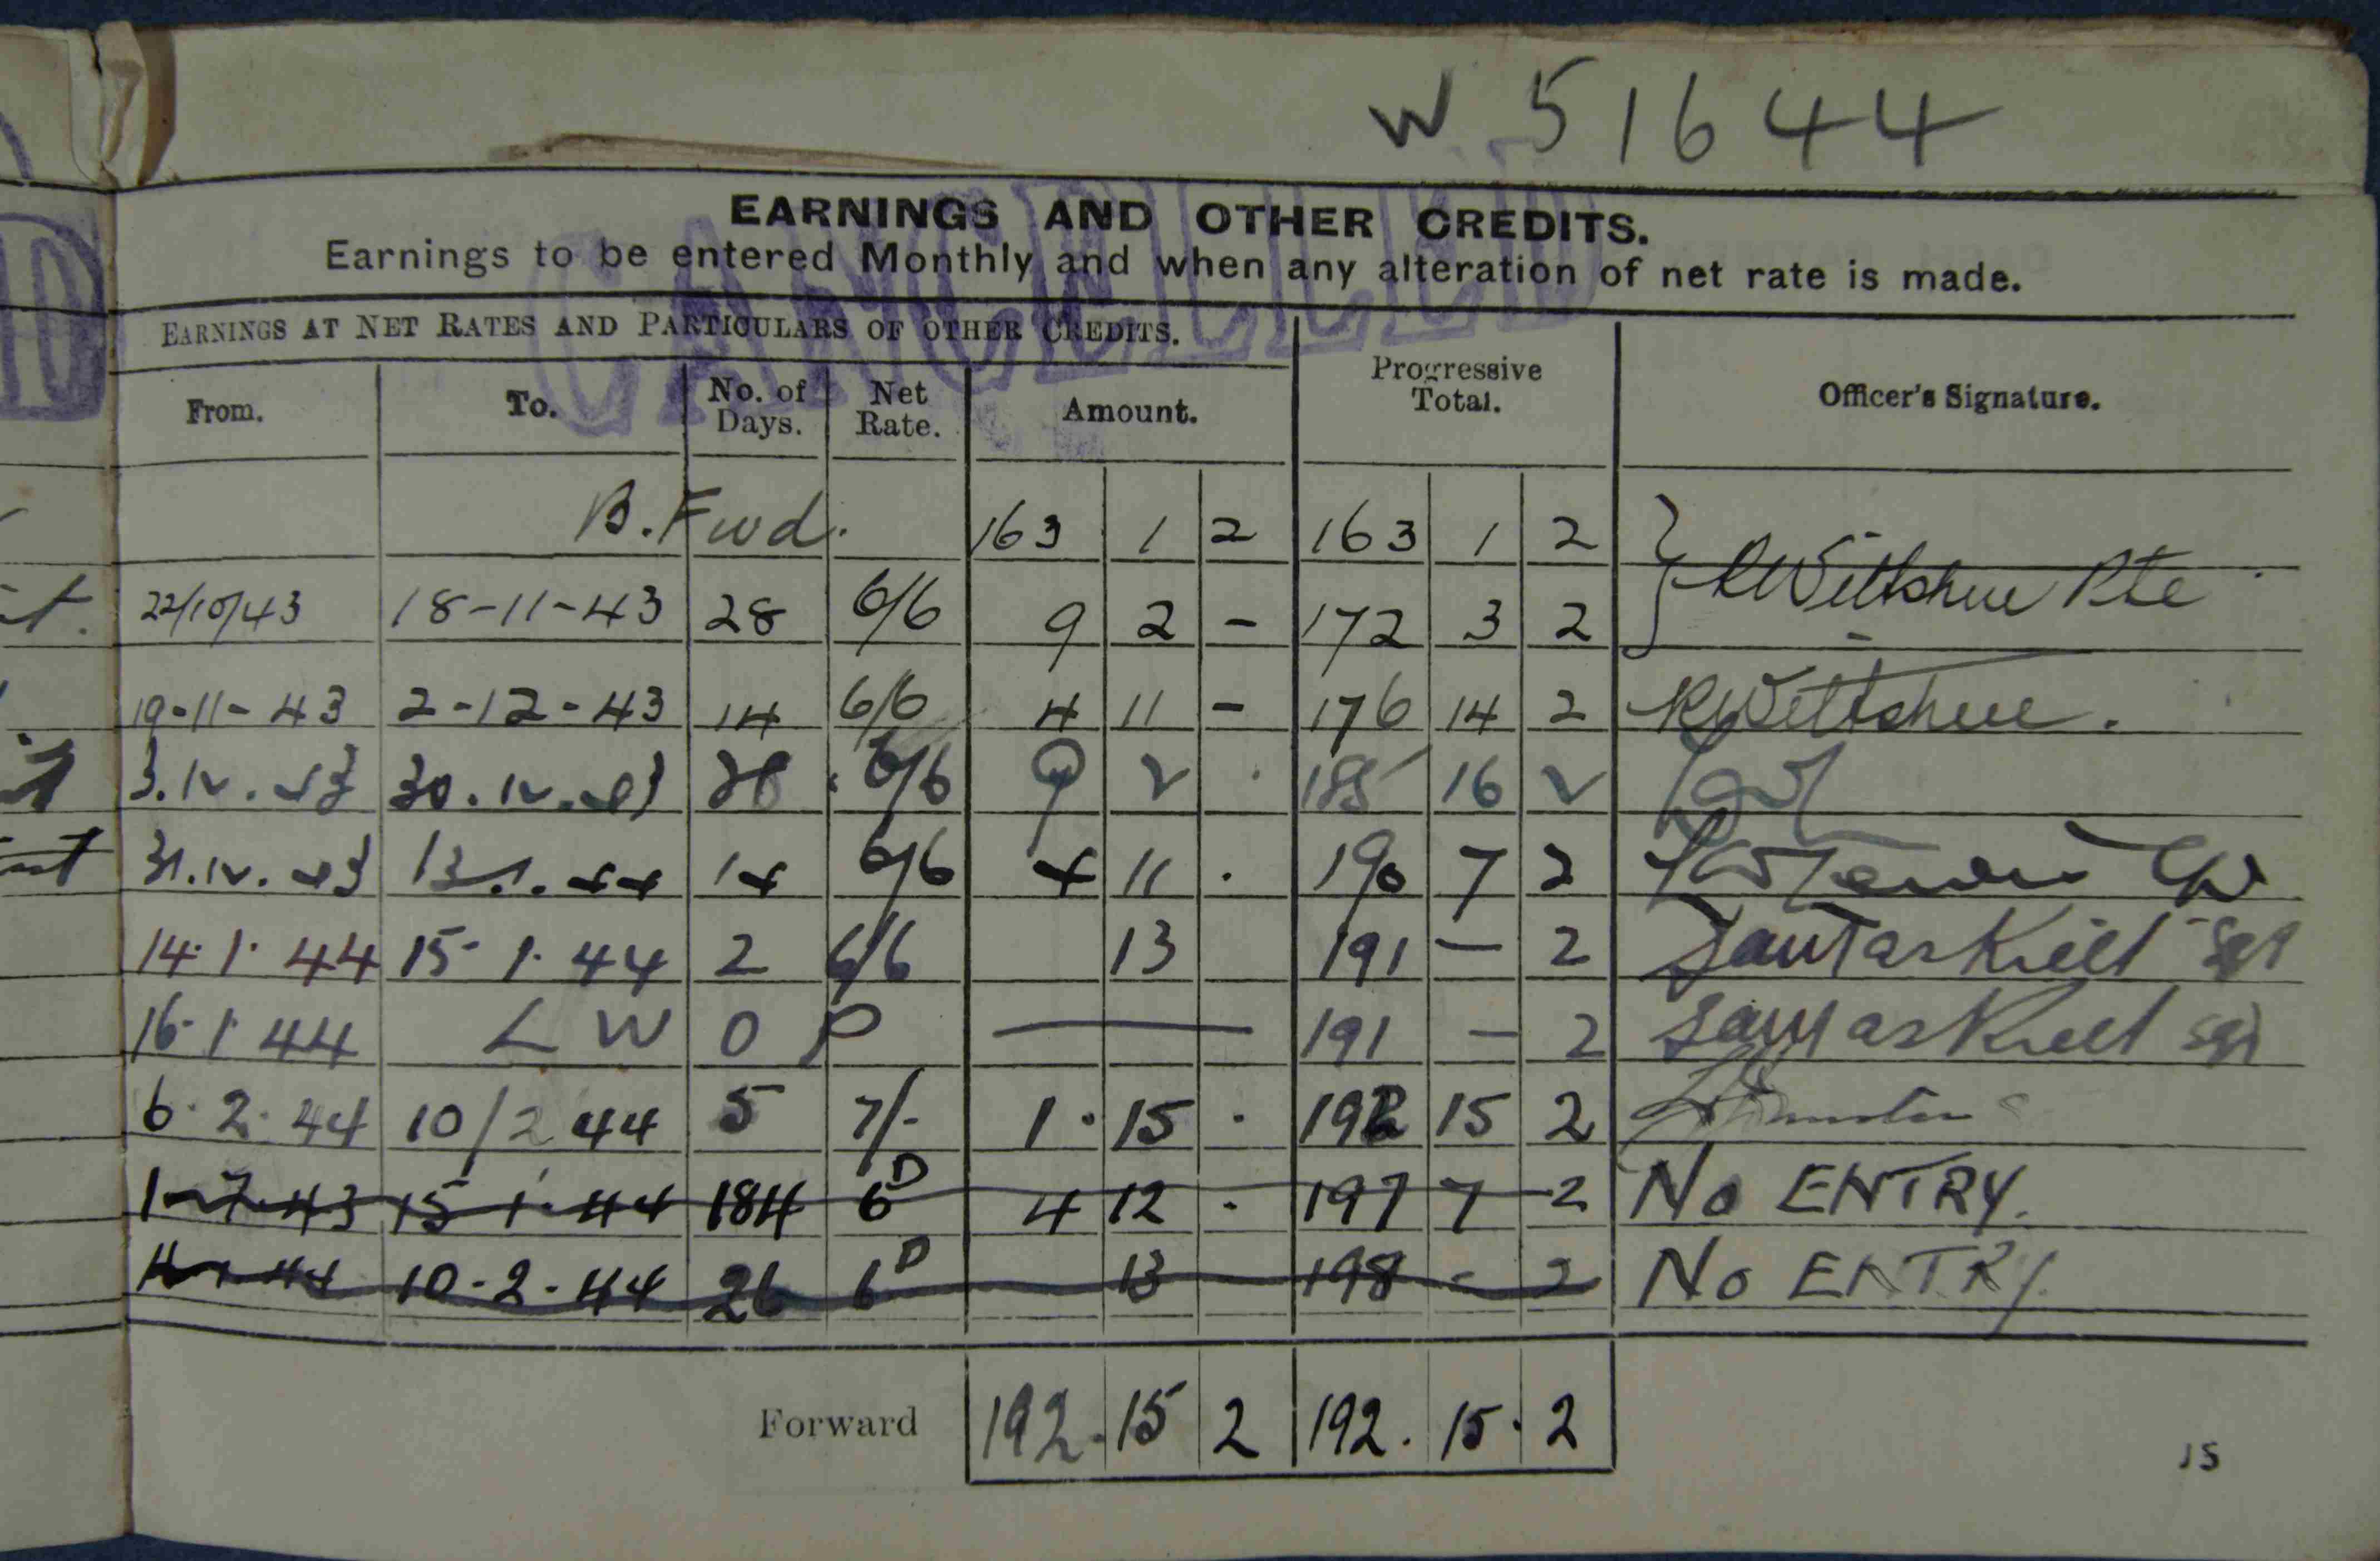 W 51644
EARNINGS AND OTHER CREDITS.
Earnings to be entered Monthly and when any alteration of net rate is made.
CANCELLED
EARNINGS AT NET RATES AND PARTICULARS OF OTHER CREDITS.
From. To. No. of Days. Net Rate. Amount. Progressive Total. Officer's Signature.
B. Fwd. 163 1 2 163 1 2
22/10/43 18-11-43 28 6/6 9 2 - 172 3 2 RWiltshire Pte
19-11-43 2-12-43 14 6/6 4 11 - 176 14 2 RWiltshire.
3.12.43 30.12.43 28 6/6 9 2 . 185 16 2
31.12.43 13.1.44 14 6/6 4 11 . 190 7 2
14.1.44 15.1.44 2 6/6 13 191 - 2 Sgt
16.1.44 L W O P — 191 - 2 Sgt
6.2.44 10/2 44 5 7/- 1.15. 192 15 2
1-7-43 15-1-44 184 6D 4 12 . 197 7 2 No ENTRY.
10-2-44 26 6D 13 198 - 2 No ENTRY.
Forward 192.15 2 192.15.2
15